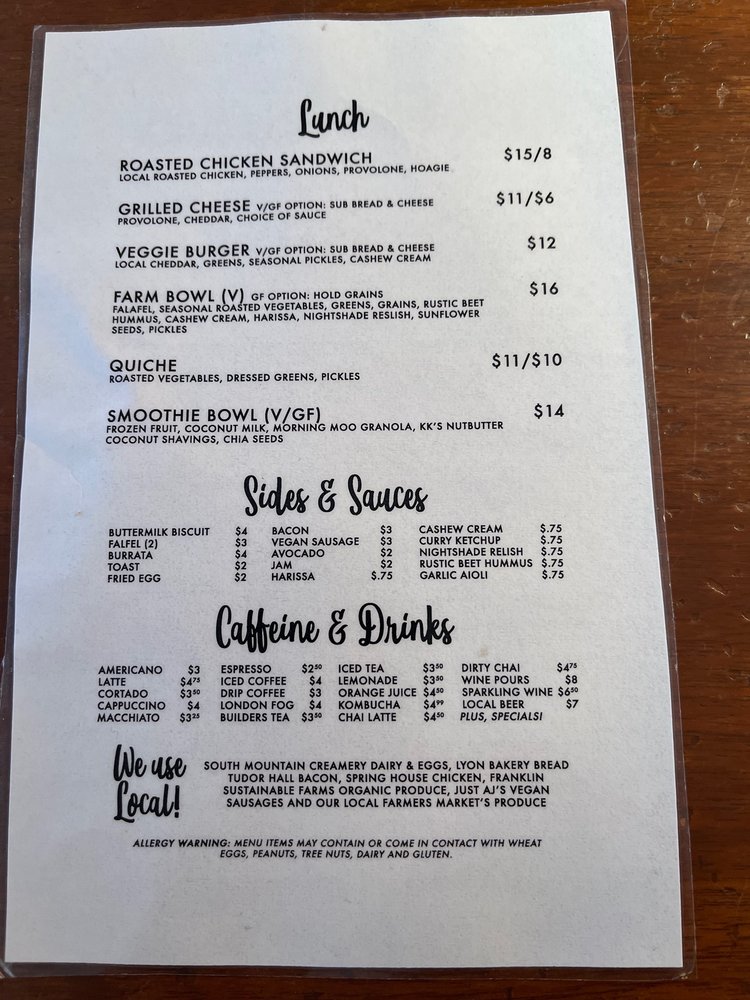 Lunch
ROASTED CHICKEN SANDWICH $15/8
LOCAL ROASTED CHICKEN, PEPPERS, ONIONS, PROVOLONE, HOAGIE
GRILLED CHEESE V/GF OPTION: SUB BREAD & CHEESE $11/$6
PROVOLONE, CHEDDAR, CHOICE OF SAUCE
VEGGIE BURGER V/GF OPTION: SUB BREAD & CHEESE $12
LOCAL CHEDDAR, GREENS, SEASONAL PICKLES, CASHEW CREAM
FARM BOWL (V) GF OPTION: HOLD GRAINS $16
FALAFEL, SEASONAL ROASTED VEGETABLES, GREENS, GRAINS, RUSTIC BEET
HUMMUS, CASHEW CREAM, HARISSA, NIGHTSHADE RESLISH, SUNFLOWER
SEEDS, PICKLES
QUICHE $11/$10
ROASTED VEGETABLES, DRESSED GREENS, PICKLES
SMOOTHIE BOWL (V/GF) $14
FROZEN FRUIT, COCONUT MILK, MORNING MOO GRANOLA, KK'S NUTBUTTER
COCONUT SHAVINGS, CHIA SEEDS
Sides & Sauces
BUTTERMILK BISCUIT $4 BACON $3 CASHEW CREAM $.75
FALFEL (2) $3 VEGAN SAUSAGE $3 CURRY KETCHUP $.75
BURRATA $4 AVOCADO $2 NIGHTSHADE RELISH $.75
TOAST $2 JAM $2 RUSTIC BEET HUMMUS $.75
FRIED EGG $2 HARISSA $.75 GARLIC AIOLI $.75
Caffeine & Drinks
AMERICANO $3 ESPRESSO $2⁵⁰ ICED TEA $3⁵⁰ DIRTY CHAI $4⁷⁵
LATTE $4⁷⁵ ICED COFFEE $4 LEMONADE $3⁵⁰ WINE POURS $8
CORTADO $3⁵⁰ DRIP COFFEE $3 ORANGE JUICE $4⁵⁰ SPARKLING WINE $6⁵⁰
CAPPUCCINO $4 LONDON FOG $4 KOMBUCHA $4⁹⁹ LOCAL BEER $7
MACCHIATO $3²⁵ BUILDERS TEA $3⁵⁰ CHAI LATTE $4⁵⁰ PLUS, SPECIALS!
We use
Local!
SOUTH MOUNTAIN CREAMERY DAIRY & EGGS, LYON BAKERY BREAD
TUDOR HALL BACON, SPRING HOUSE CHICKEN, FRANKLIN
SUSTAINABLE FARMS ORGANIC PRODUCE, JUST AJ'S VEGAN
SAUSAGES AND OUR LOCAL FARMERS MARKET'S PRODUCE
ALLERGY WARNING: MENU ITEMS MAY CONTAIN OR COME IN CONTACT WITH WHEAT
EGGS, PEANUTS, TREE NUTS, DAIRY AND GLUTEN.